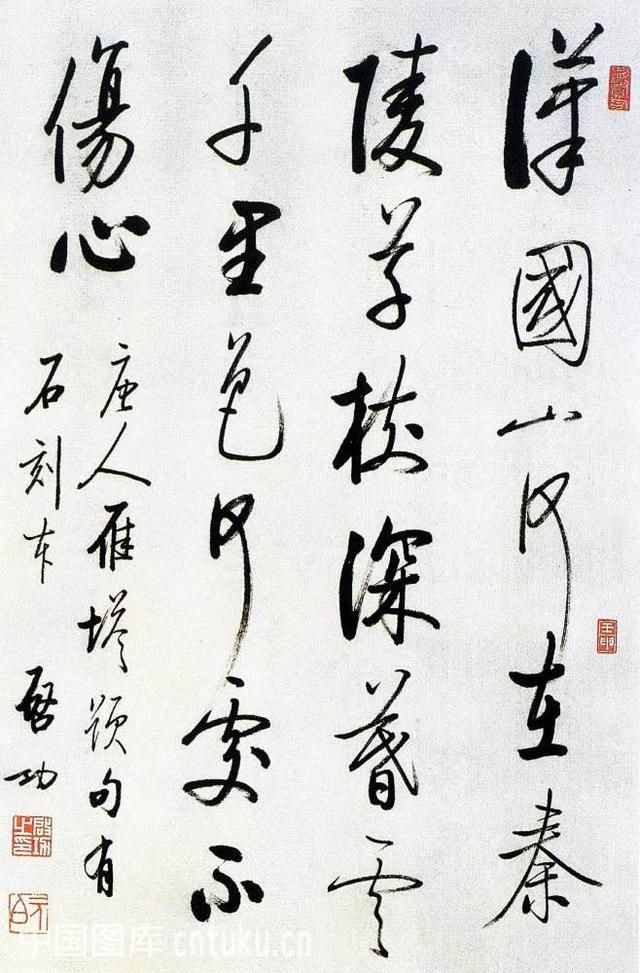 漢國山河在秦
陵草樹深暮雲
千里色何處不
傷心
唐人雁塔題句有
石刻本
啓功
啟功之印
元白
中国图库 cntuku.cn